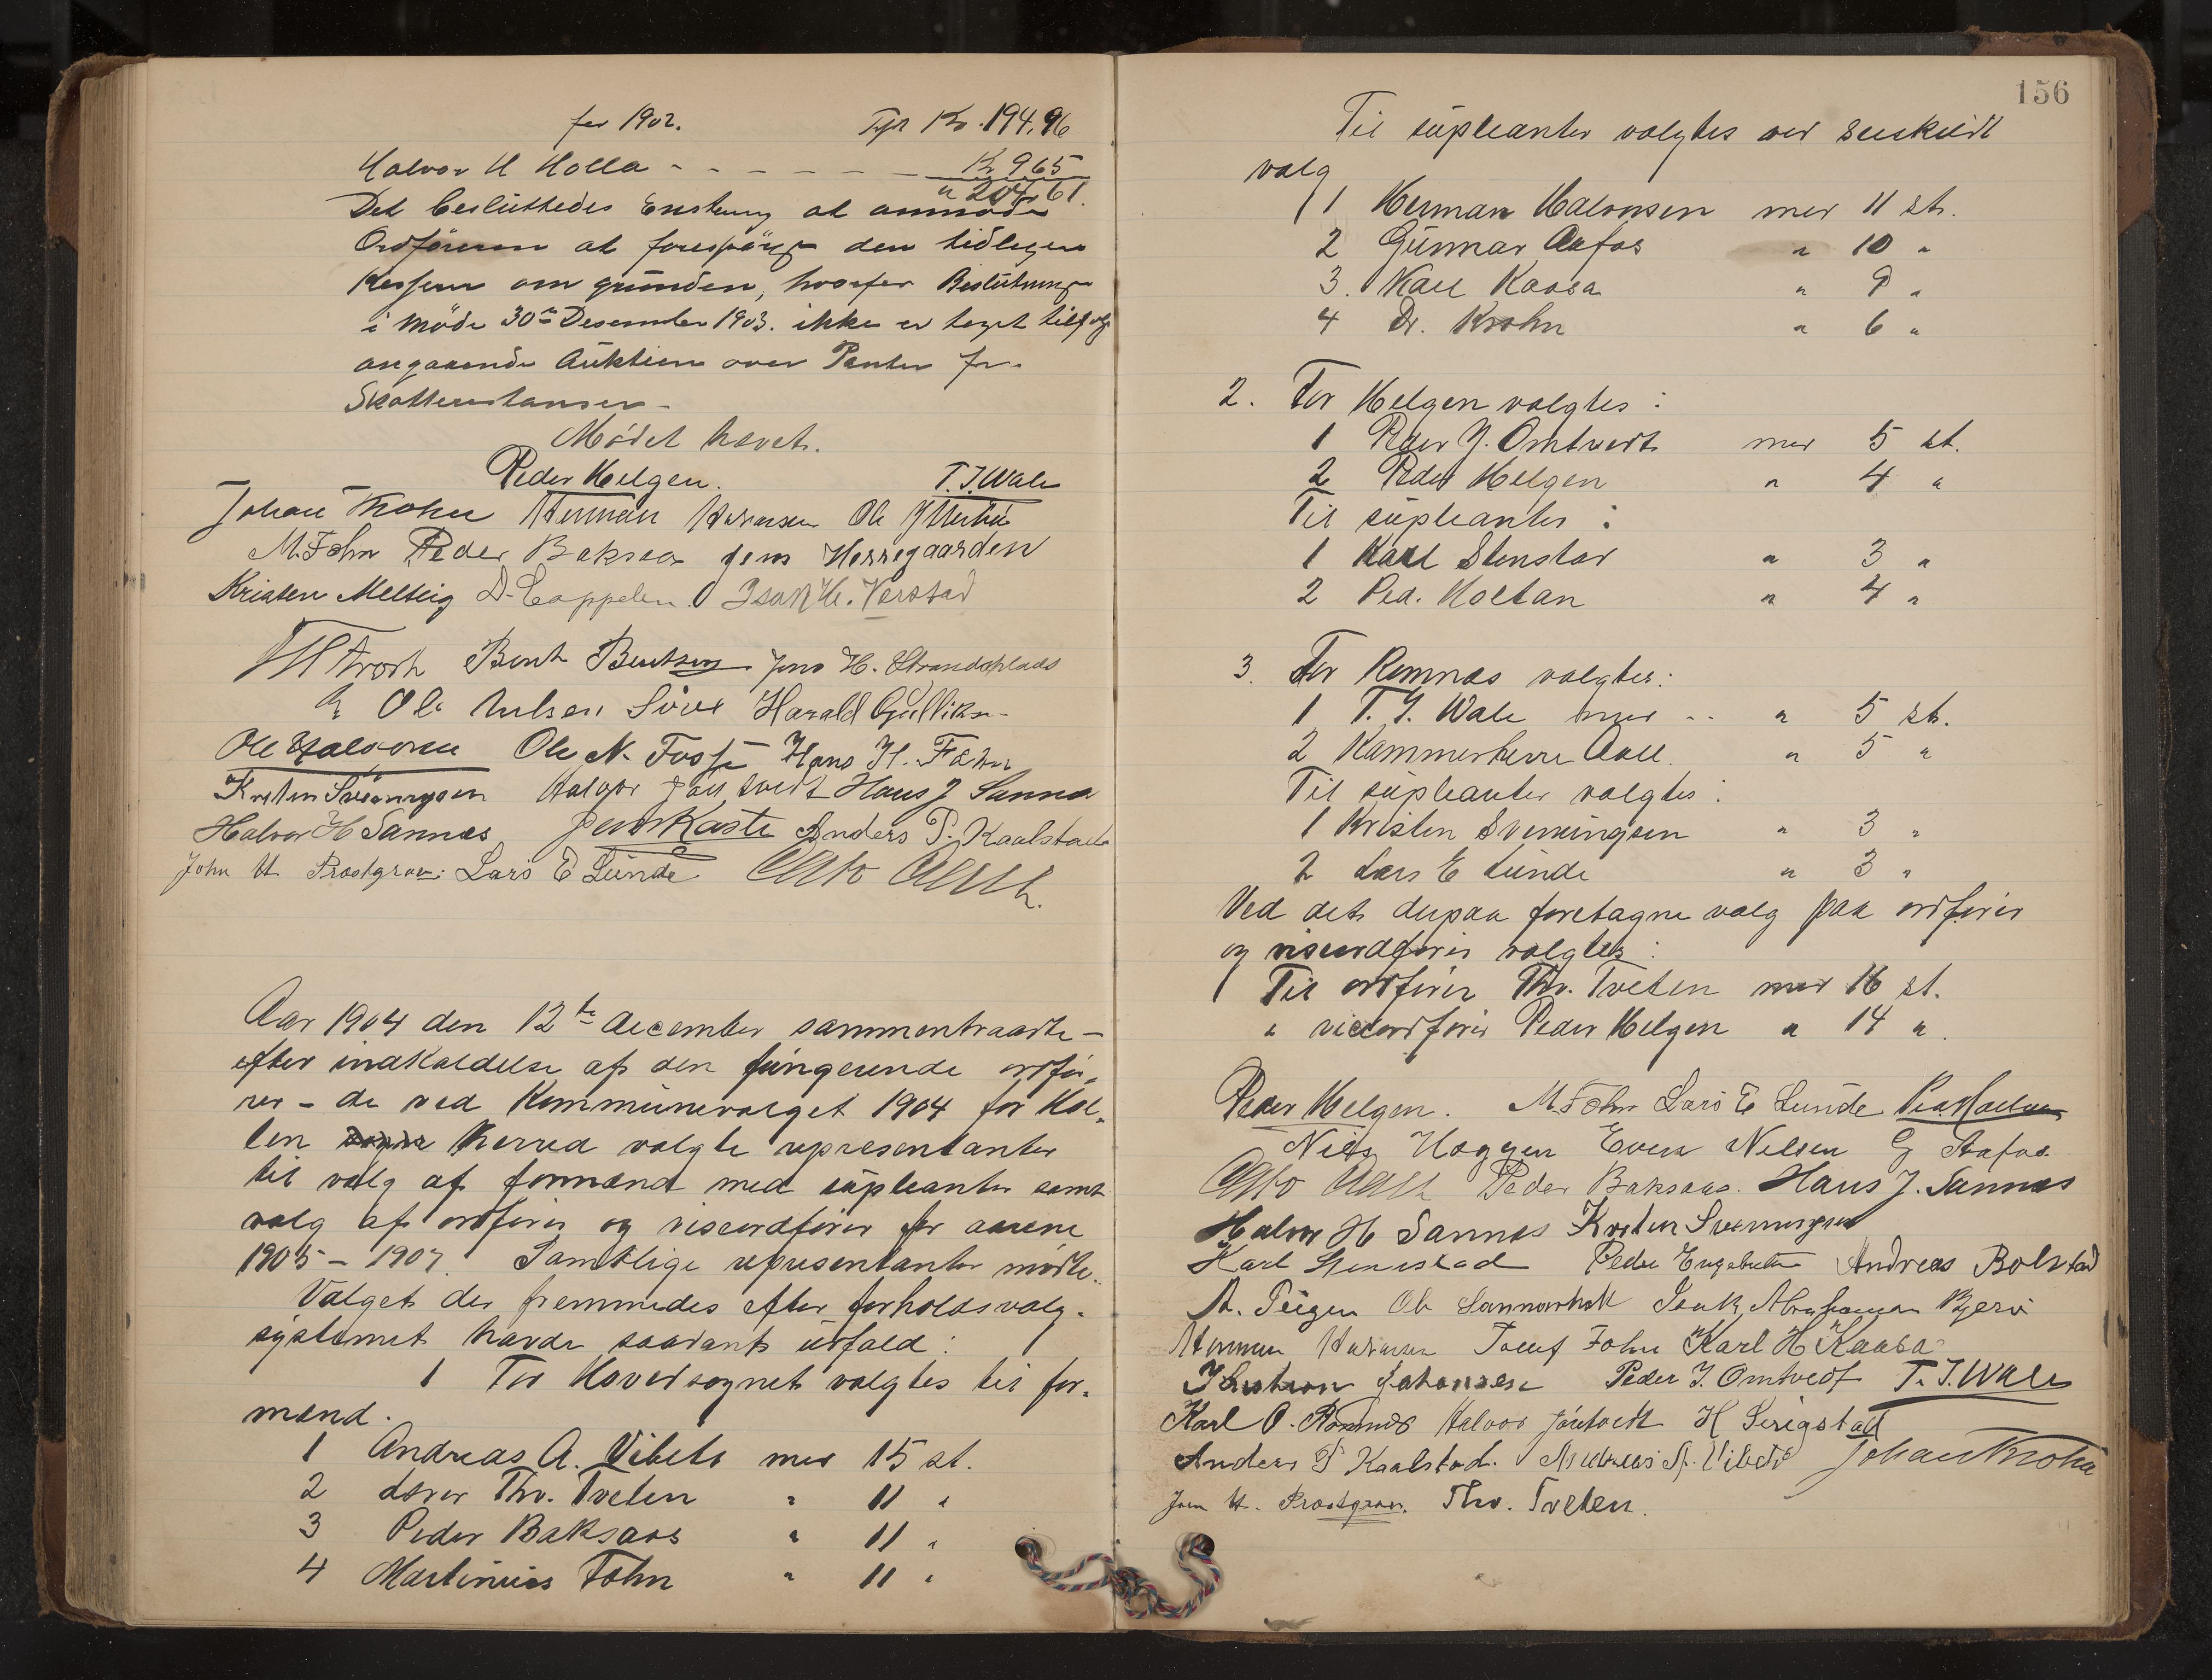 for 1902. Tfr Kr. 194,96
Halvor H Holla - - - - - - Kr 9 65
" 204,61.
Det besluttedes Enstemig at anmode
Ordföreren at forespörge den tidligere
Kasserer om grunden, hvorfor Beslutningen
i Möde 30te Desember 1903. ikke er taget tilfölge
angaaende Auktion over Panter for
Skatterestanser.
Mödet hævet.
Peder Helgen. T. J. Wale
Johan Krohn Herman Halvorsen Ole Ytterbö
M. Fohn Peder Baksaas Jens Herregaarden
Kristen Melteig D. Cappelen Isak H. Verstad
Bent Bentsen Jens H. Strandplads
Ole Nilsen Söve Harald Gulliksen
Ole Halvorsen Ole N. Fosse Hans H. Fohn
Kristen Sveinungsen Halvor Jöntvedt Hans J. Sannes
Halvor H Sannes Jens Kaste Anders P. Kaalstad
John H. Prostgrav. Lars E Lunde Cato Aall.
Aar 1904 den 12te december sammentraadte -
efter indkaldelse af den fungerende ordfö-
rer - de ved Kommunevalget 1904 for Hol-
len herred valgte representanter
til valg af formænd med supleanter samt
valg af ordförer og viseordförer for aarene
1905 - 1907. Samtlige representanter mödte.
Valget der fremmedes efter forholdsvalg-
systemet havde saadant udfald:
1 For Hovedsognet valgtes til for-
mænd.
1 Andreas A. Vibeto med 15 st.
2 Lærer Thv. Tveten " 11 "
3 Peder Baksaas " 11 "
4 Martinius Fohn " 11 "
156
Til supleanter valgtes ved særskildt
valg
1 Herman Halvorsen med 11 st.
2 Gunnar Aafos " 10 "
3. Karl Kaasa " 9 "
4 Dr. Krohn " 6 "
2. For Helgen valgtes:
1 Peder J. Omtvedt med 5 st.
2 Peder Helgen " 4 "
Til supleanter:
1 Karl Stenstad " 3 "
2 Ped. Holtan " 4 "
3. For Romnes valgtes:
1 T. J. Wale med -- " 5 st.
2 Kammerherre Aall. " 5 "
Til supleanter valgtes:
1 Kristen Svenningsen " 3 "
2 Lars E Lunde " 3 "
Ved det derpaa foretagne valg paa ordförer
og viseordförer valgtes:
Til ordförer Thv. Tveten med 16 st.
" viceordförer Peder Helgen " 14 ".
Peder Helgen. M. Fohn Lars E Lunde Ped. Holtan
Niels Haggen Even Nilsen G Aafos
Cato Aall Peder Baksaas. Hans J. Sannes
Halvor H Sannes Kristen Svenningsen
Karl Stenstad Peder Engebretsen Andreas Bolstad
A. Teigen Ole Isak Abrahamsen Bjerva
Herman Halvorsen Fohn Karl H Kaasa
Johansen Peder J. Omtvedt T. J. Wale
Karl O. Romnes Halvor Jöntvedt H Serigstad
Anders P Kaalstad. Andreas A. Vibeto Johan Krohn
John H. Prostgrav. Thv. Tveten.